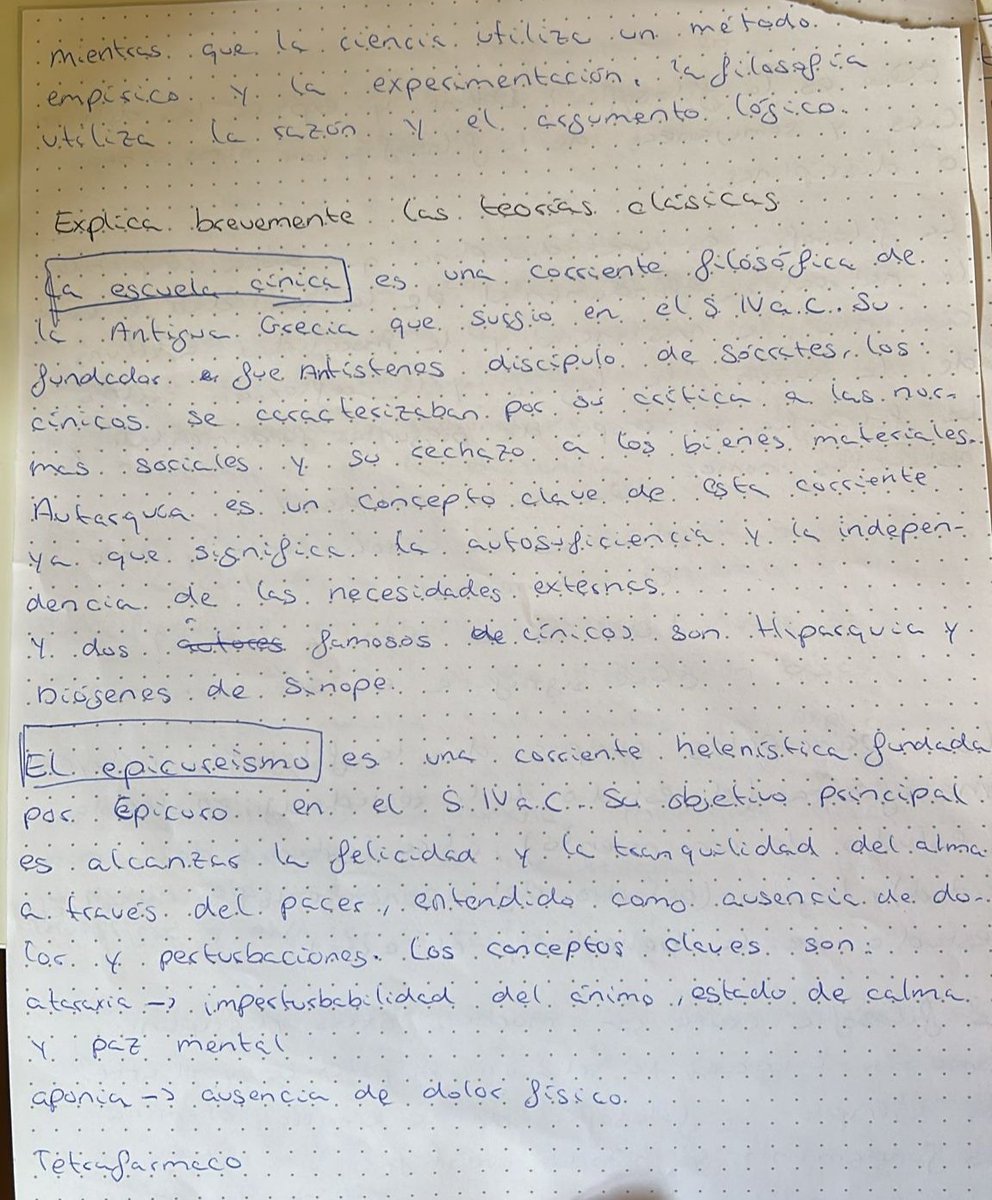 mientras que la ciencia utiliza un método
empírico y la experimentación, la filosofía
utiliza la razón y el argumento lógico.
Explica brevemente las teorías clásicas
La escuela cínica es una corriente filosófica de
la Antigua Grecia que surgio en el S IV a.C. Su
fundador fue Antístenes discípulo de Sócrates, los
cínicos se caracterizaban por su crítica a las nor-
mas sociales y su rechazo a los bienes materiales.
Autarquía es un concepto clave de esta corriente
ya que significa la autosuficiencia y la indepen-
dencia de las necesidades externas.
Y dos autores famosos de cínicos son Hiparquia y
Diógenes de Sinope.
El epicureismo es una corriente helenística fundada
por Epicuro en el S. IV a.C. Su objetivo principal
es alcanzar la felicidad y la tranquilidad del alma
a través del pacer, entendido como ausencia de do-
lor y perturbaciones. Los conceptos claves son:
ataraxia → imperturbabilidad del ánimo, estado de calma
Y paz mental
aponia → ausencia de dolor físico.
Tetrafarmaco